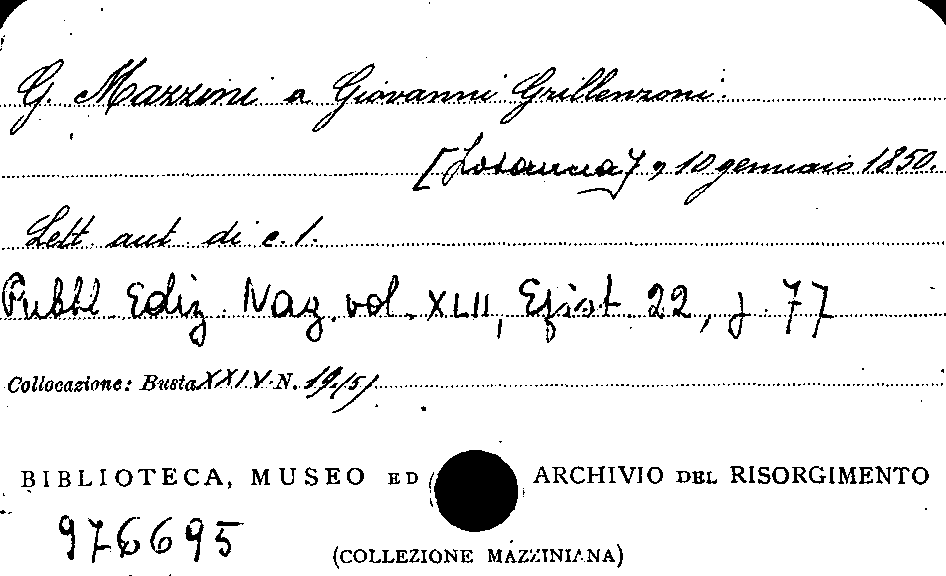 G. Mazzini a Giovanni Grillenzoni.
[Losanna], 10 gennaio 1850.
Lett. aut. di c. 1.
Pubbl. Ediz. Naz. vol. XLII, Epist. 22, p. 77
Collocazione: Busta XXIV N. 19/5/
BIBLIOTECA, MUSEO ED ARCHIVIO DEL RISORGIMENTO
976695
(COLLEZIONE MAZZINIANA)